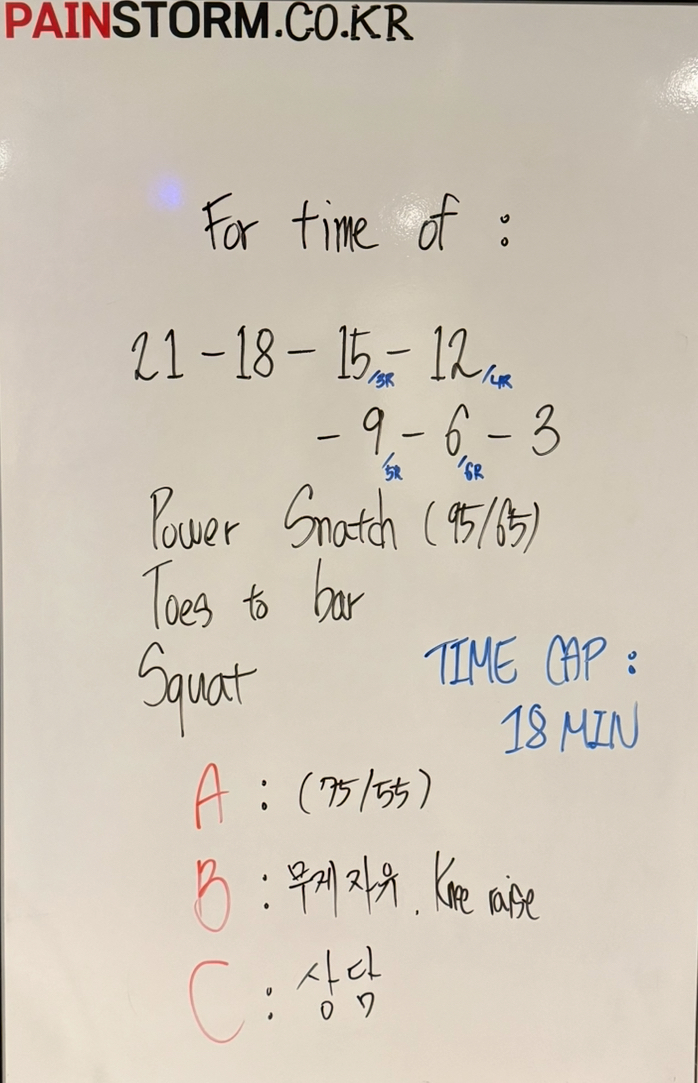 PAINSTORM.CO.KR
For time of :
21 - 18 - 15/3R - 12/4R
- 9/5R - 6/6R - 3
Power Snatch (95/65)
Toes to bar
Squat
TIME CAP :
18 MIN
A : (75/55)
B : 무게 자유. Knee raise
C : 상담